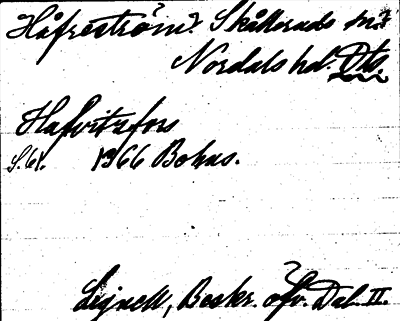 Håfreström? Skållerads sn?
Nordals hd. Dls.
Hafvitzfors
S. 61. 1766 Bohus.
Lignell, Beskr. öfv. Dal. II.